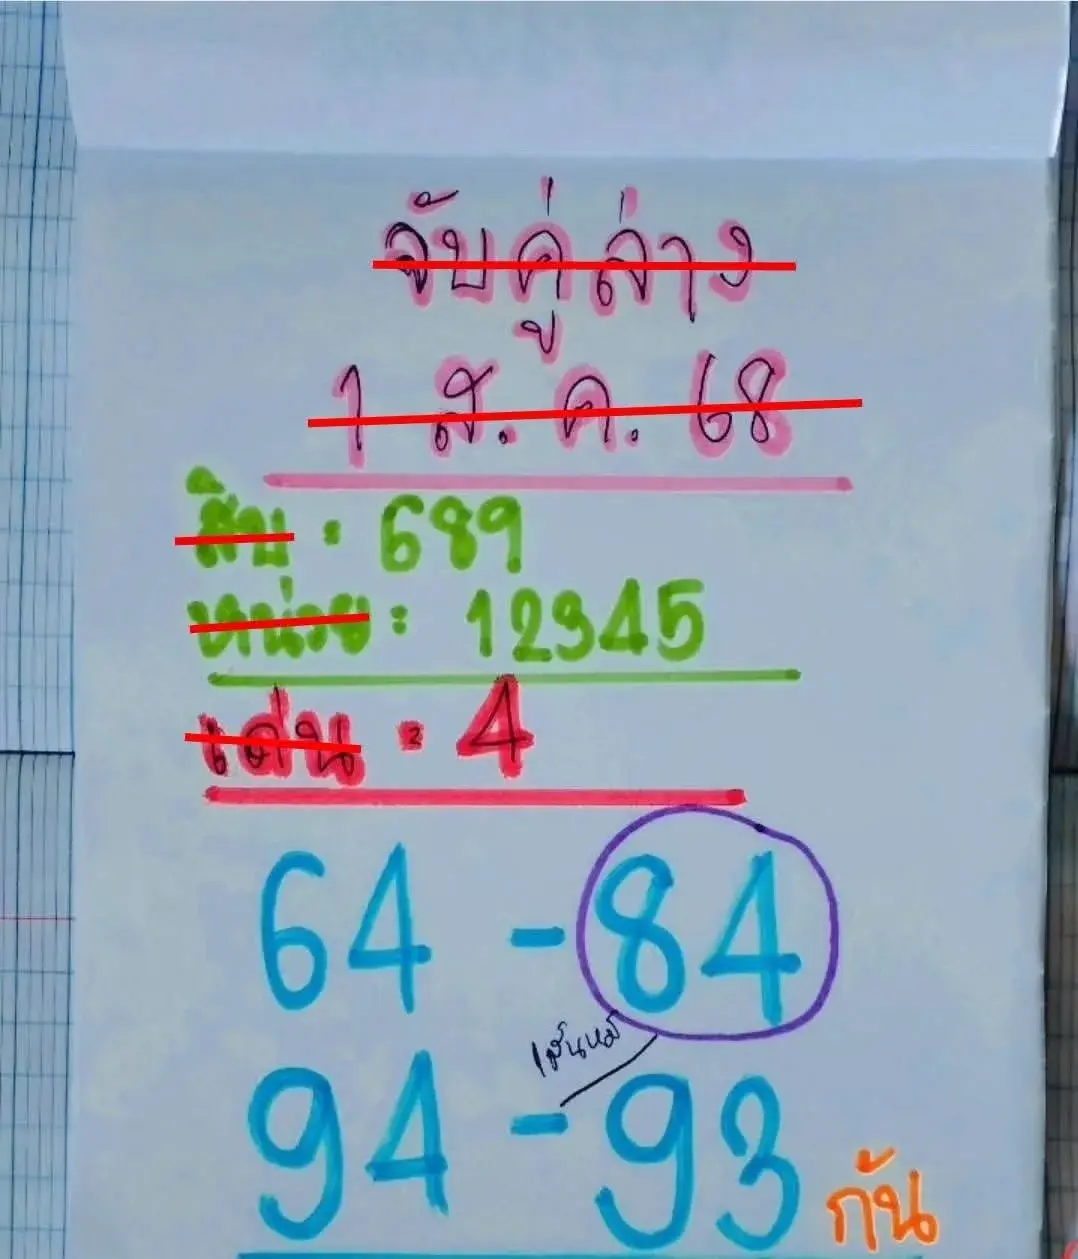 จับคู่ล่าง
1 ส.ค. 68
สิบ : 689
หน่วย : 12345
เด่น : 4
64 - 84
เส้นหมี่
94 - 93
กัน